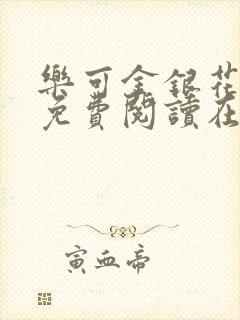 樂可金銀花
免費閱讀在
寅血帝